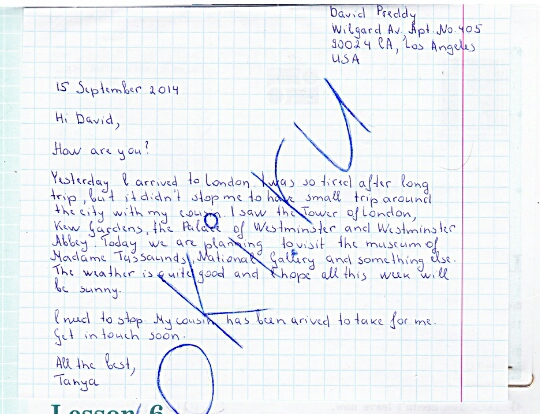 David Preddy
Wilgard Av, Apt. No 405
90024 CA, Los Angeles
USA
15 September 2014
Hi David,
How are you?
Yesterday I arrived to London. I was so tired after long
trip, but it didn't stop me to have small trip around
the city with my cousin. I saw the Tower of London,
Kew Gardens, the Palace of Westminster and Westminster
Abbey. Today we are planning to visit the museum of
Madame Tussaunds, National Gallery and something else.
The weather is quite good and I hope all this week will
be sunny.
I need to stop. My cousin has been arived to take for me.
Get in touch soon.
All the best,
Tanya
Lesson 6